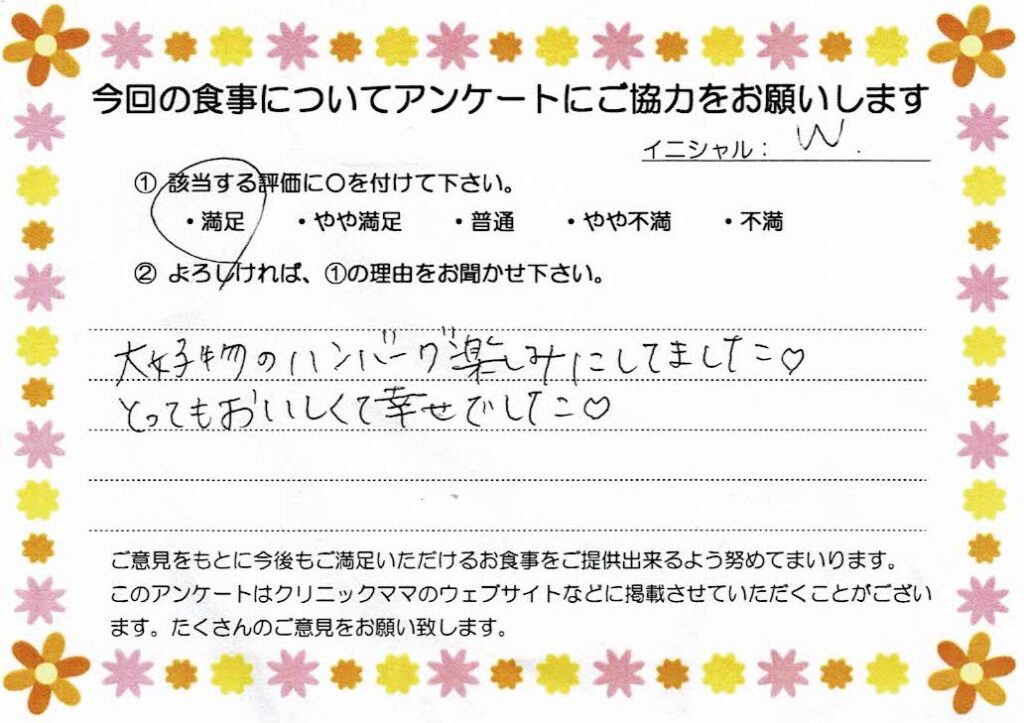 今回の食事についてアンケートにご協力をお願いします
イニシャル： W.
① 該当する評価に○を付けて下さい。
・満足 ・やや満足 ・普通 ・やや不満 ・不満
② よろしければ、①の理由をお聞かせ下さい。
大好物のハンバーグ楽しみにしてました♡
とってもおいしくて幸せでした♡
ご意見をもとに今後もご満足いただけるお食事をご提供出来るよう努めてまいります。
このアンケートはクリニックママのウェブサイトなどに掲載させていただくことがござい
ます。たくさんのご意見をお願い致します。